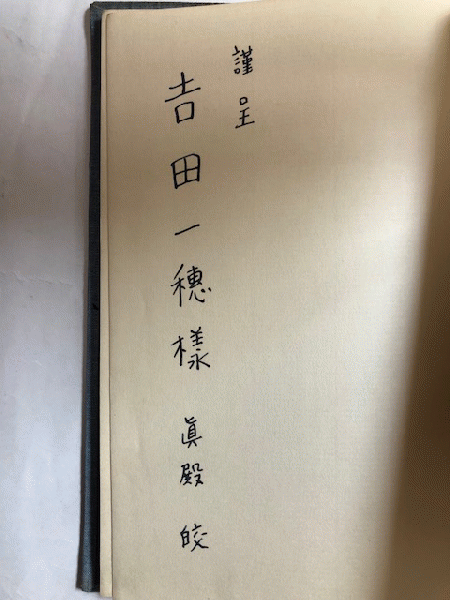 謹呈
吉田一穂樣 眞殿皎